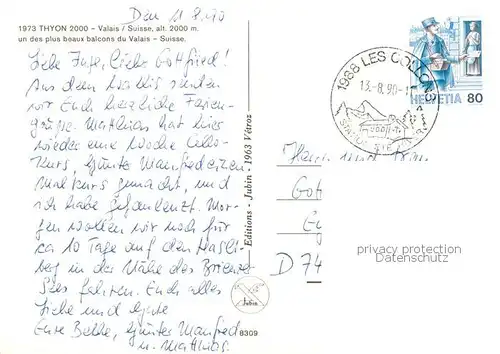 Den 11.8.90
1973 THYON 2000 - Valais / Suisse, alt. 2000 m.
un des plus beaux balcons du Valais - Suisse.
Liebe Inge, lieber Gottfried!
Aus dem Wallis senden
wir Euch herzliche Ferien-
grüße. Matthias hat hier
wieder eine Woche Cello-
Kurs, Günter Manfred einen
Malkurs gemacht, und
ich habe gefaulenzt. Mor-
gen wollen wir noch für
ca 10 Tage auf den Hasli-
berg in der Nähe des Brienzer
Sees fahren. Euch alles
Liebe und Gute
Eure Bekke, Günter Manfred
u. Matthias.
Editions - Jubin - 1963 Vétroz
Jubin
8309
1988 LES COLLONS
13.-8.90-1
STATION
HELVETIA 80
Herrn und Frau
Got
D 74
privacy protection
Datenschutz